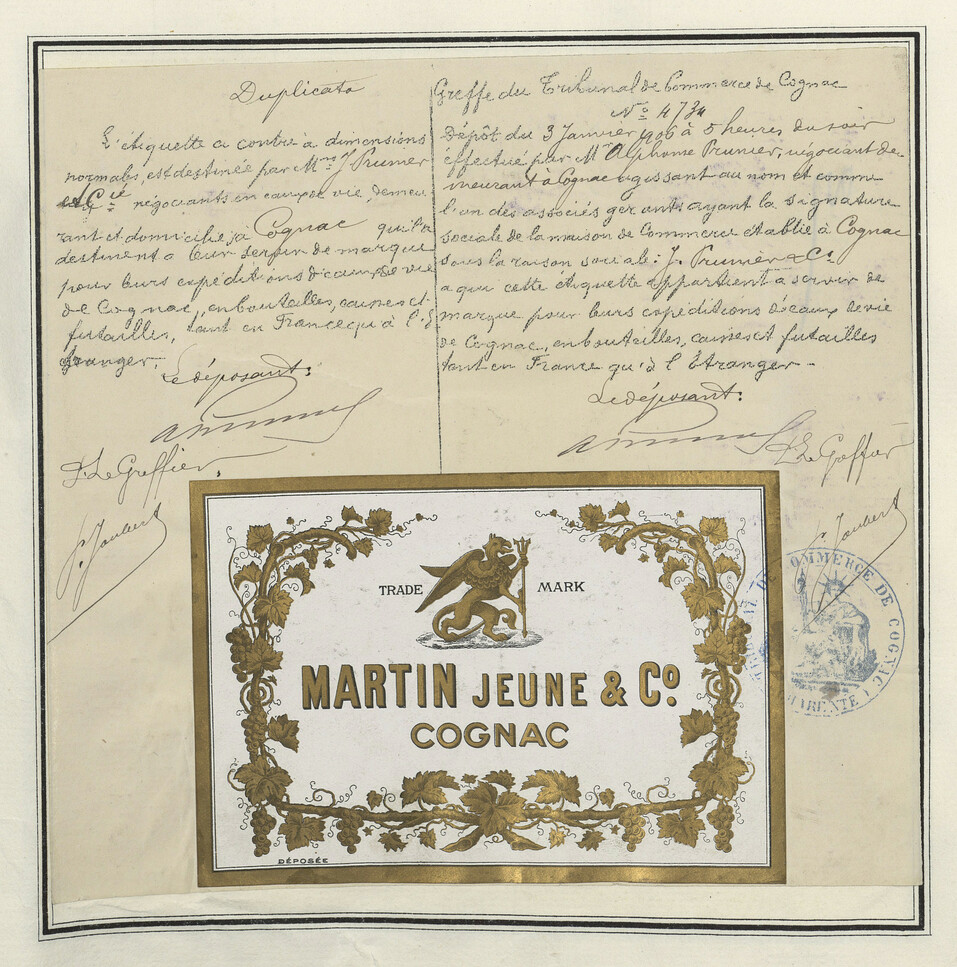 Duplicata
L'étiquette ci contre à dimensions
normales, est destinée par Mrs J. Prunier
et Cie négociants en eaux de vie, demeu
rant et domiciliés à Cognac qui la
destinent à leur servir de marque
pour leurs expéditions d'eaux de vie
de Cognac, en bouteilles, caisses et
futailles, tant en France qu'à l'É
tranger.
Le déposant:
P. Le Greffier,
Greffe du Tribunal de Commerce de Cognac
No 4734
Dépôt du 3 Janvier 1906 à 5 heures du soir
effectué par Mr Alphonse Prunier, négociant de-
meurant à Cognac agissant au nom et comme
l'un des associés gérants ayant la signature
sociale de la maison de Commerce établie à Cognac
sous la raison sociale: J. Prunier & Cie
a qui cette étiquette appartient à servir de
marque pour leurs expéditions d'eaux de vie
de Cognac, en bouteilles, caisses et futailles
tant en France qu'à l'Étranger.
Le déposant:
P. Le Greffier
TRADE MARK
MARTIN JEUNE & Co.
COGNAC
DÉPOSÉE
COMMERCE DE COGNAC